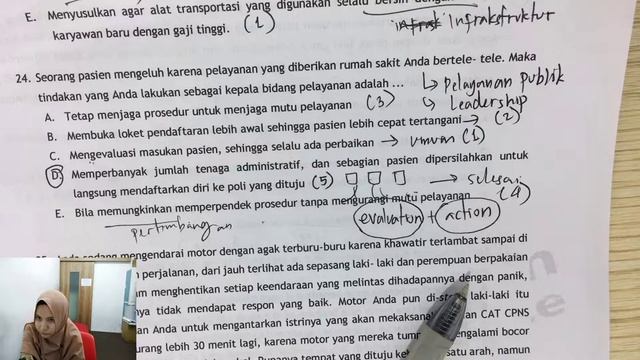 E. Menyusulkan agar alat transportasi yang digunakan selalu bersih dengan
karyawan baru dengan gaji tinggi. (1) infrak Infrakstruktur
24. Seorang pasien mengeluh karena pelayanan yang diberikan rumah sakit Anda bertele- tele. Maka
tindakan yang Anda lakukan sebagai kepala bidang pelayanan adalah ... ↳ pelayanan publik
A. Tetap menjaga prosedur untuk menjaga mutu pelayanan (3) ↳ Leadership
B. Membuka loket pendaftaran lebih awal sehingga pasien lebih cepat tertangani → (2)
C. Mengevaluasi masukan pasien, sehingga selalu ada perbaikan → umum (1)
D. Memperbanyak jumlah tenaga administratif, dan sebagian pasien dipersilahkan untuk
langsung mendaftarkan diri ke poli yang dituju (5) → selesai
E. Bila memungkinkan memperpendek prosedur tanpa mengurangi mutu pelayanan (4)
pertimbangan evaluation + action
mengendarai motor dengan agak terburu-buru karena khawatir terlambat sampai di
perjalanan, dari jauh terlihat ada sepasang laki- laki dan perempuan berpakaian
menghentikan setiap keendaraan yang melintas dihadapannya dengan panik,
tidak mendapat respon yang baik. Motor Anda pun di- laki-laki itu
Anda untuk mengantarkan istrinya yang akan CAT CPNS
lebih 30 menit lagi, karena motor yang mereka mengalami bocor
tempat yang dituju satu arah, namun